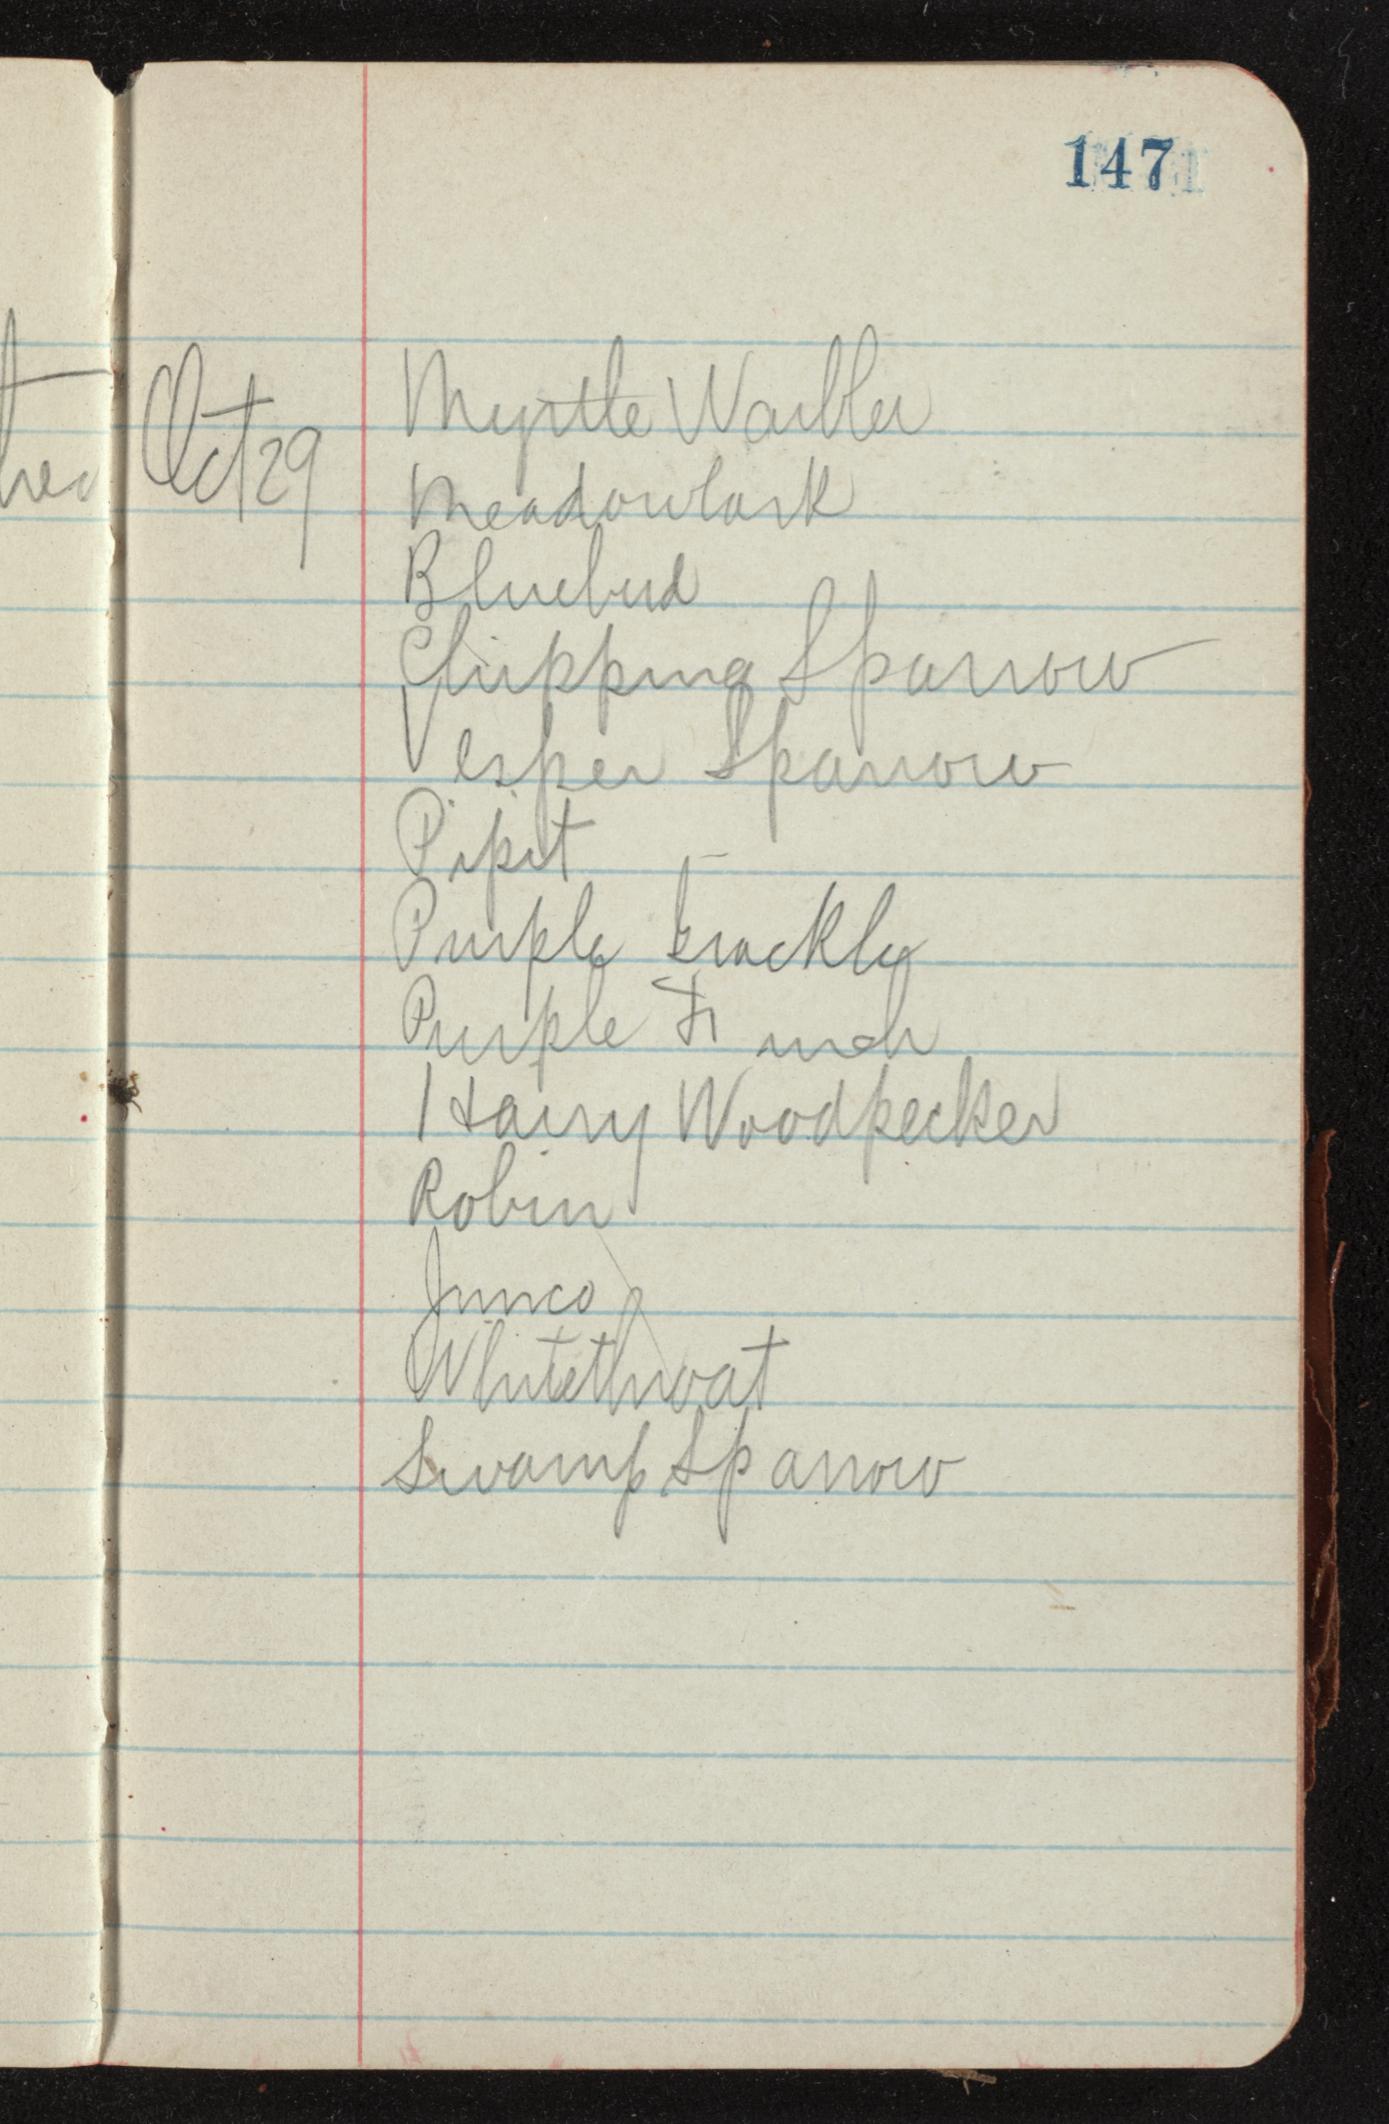 147
Oct 29
Myrtle Warbler
Meadowlark
Bluebird
Chipping Sparrow
Vesper Sparrow
Pipit
Purple Grackle
Purple Finch
Hairy Woodpecker
Robin
Junco
Whitethroat
Swamp Sparrow